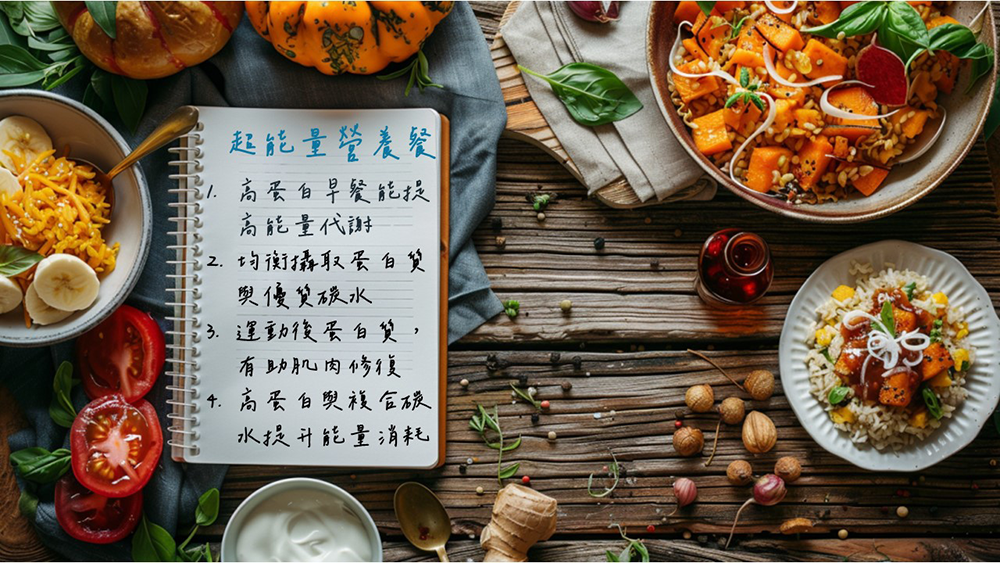 超能量營養餐
1. 高蛋白早餐能提
高能量代謝
2. 均衡攝取蛋白質
與優質碳水
3. 運動後蛋白質，
有助肌肉修復
4. 高蛋白與複合碳
水提升能量消耗